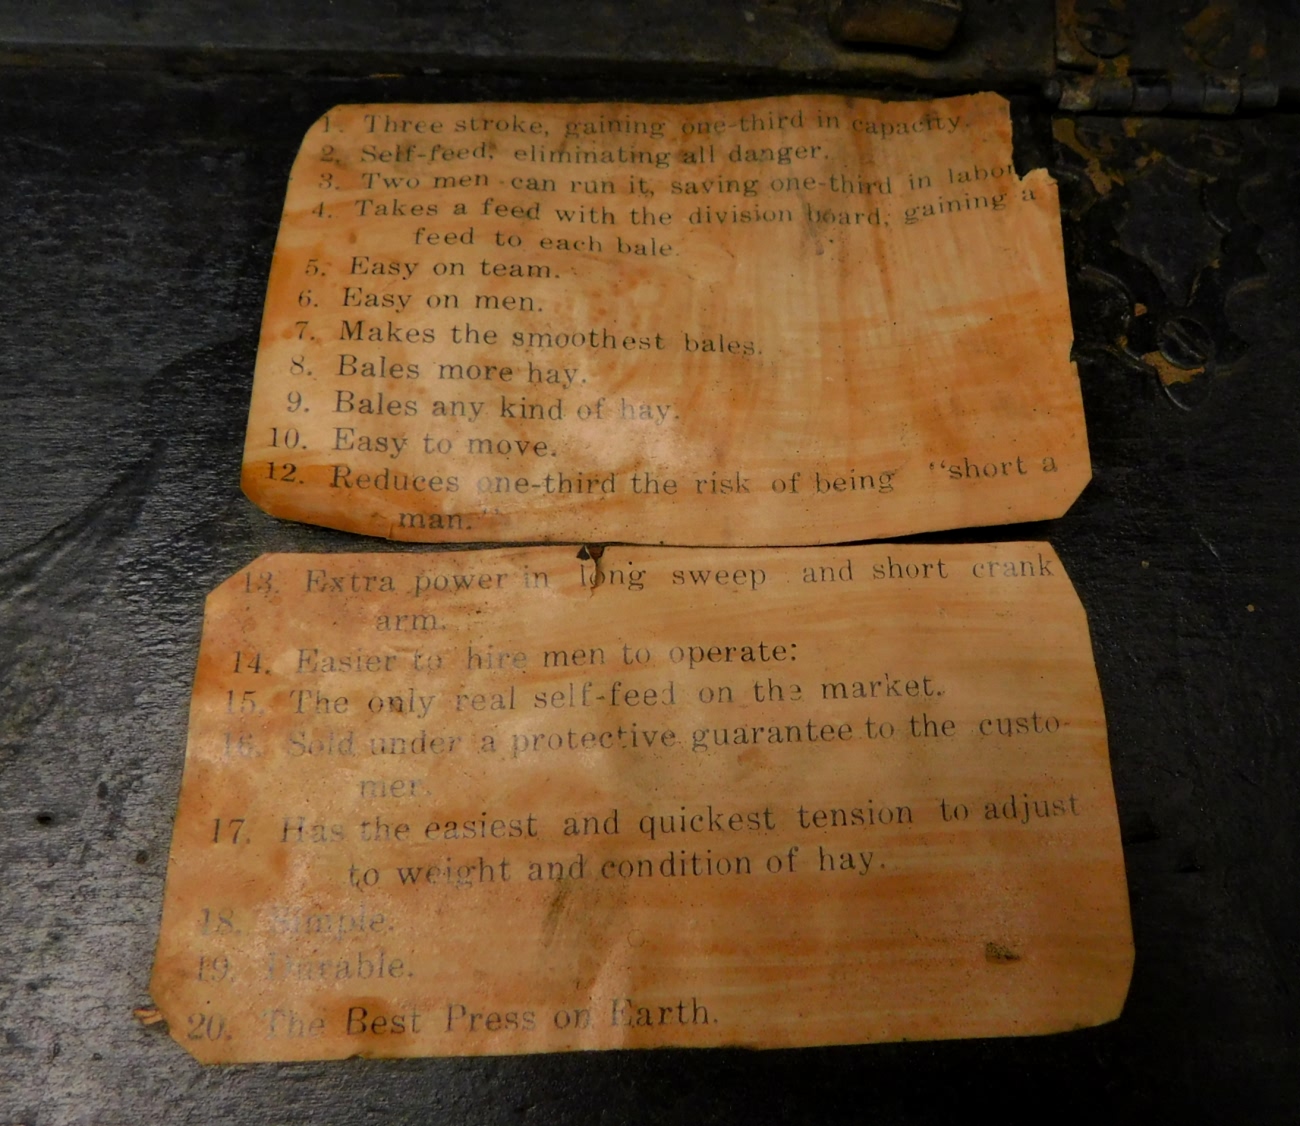 1. Three stroke, gaining one-third in capacity.
2. Self-feed, eliminating all danger.
3. Two men can run it, saving one-third in labor
4. Takes a feed with the division board, gaining a
feed to each bale.
5. Easy on team.
6. Easy on men.
7. Makes the smoothest bales.
8. Bales more hay.
9. Bales any kind of hay.
10. Easy to move.
12. Reduces one-third the risk of being "short a
man."
13. Extra power in long sweep and short crank
arm.
14. Easier to hire men to operate:
15. The only real self-feed on the market.
16. Sold under a protective guarantee to the custo-
mer.
17. Has the easiest and quickest tension to adjust
to weight and condition of hay.
18. Simple.
19. Durable.
20. The Best Press on Earth.